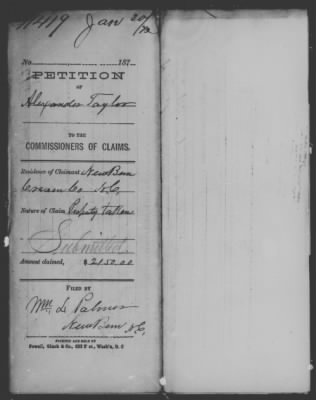 Jan 20/72
No. 187
PETITION
OF
Alexander Taylor
TO THE
COMMISSIONERS OF CLAIMS.
Residence of Claimant New Bern
Craven Co N.C.
Nature of Claim Property taken
Submitted
Amount claimed, $2150.00
FILED BY
Wm L Palmer
New Bern N.C.
PRINTED AND SOLD BY
Powell, Ginck & Co., 632 F st., Wash'n, D. C